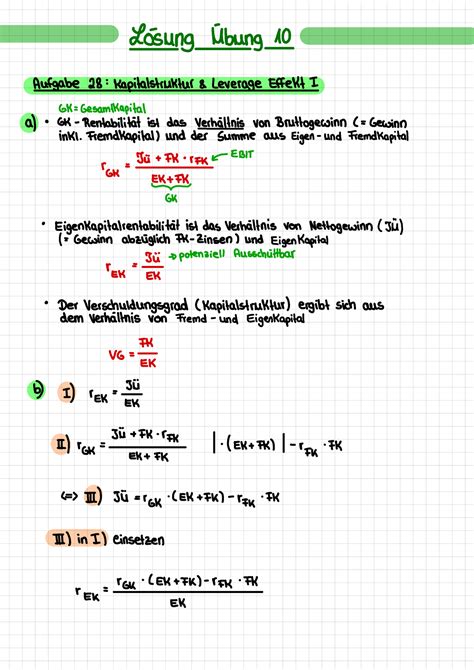 Lösung Übung 10
Aufgabe 28: Kapitalstruktur & Leverage Effekt I
GK = Gesamtkapital
a) • GK-Rentabilität ist das Verhältnis von Bruttogewinn (= Gewinn
inkl. Fremdkapital) und der Summe aus Eigen- und Fremdkapital
r_GK = (JÜ + FK · r_FK) / (EK + FK) ← EBIT
GK
• Eigenkapitalrentabilität ist das Verhältnis von Nettogewinn (JÜ)
(= Gewinn abzüglich FK-Zinsen) und Eigenkapital
r_EK = JÜ / EK → potenziell Ausschüttbar
• Der Verschuldungsgrad (Kapitalstruktur) ergibt sich aus
dem Verhältnis von Fremd- und Eigenkapital
VG = FK / EK
b) I) r_EK = JÜ / EK
II) r_GK = (JÜ + FK · r_FK) / (EK + FK) | · (EK + FK) | - r_FK · FK
(=) III) JÜ = r_GK · (EK + FK) - r_FK · FK
III) in I) einsetzen
r_EK = (r_GK · (EK + FK) - r_FK · FK) / EK